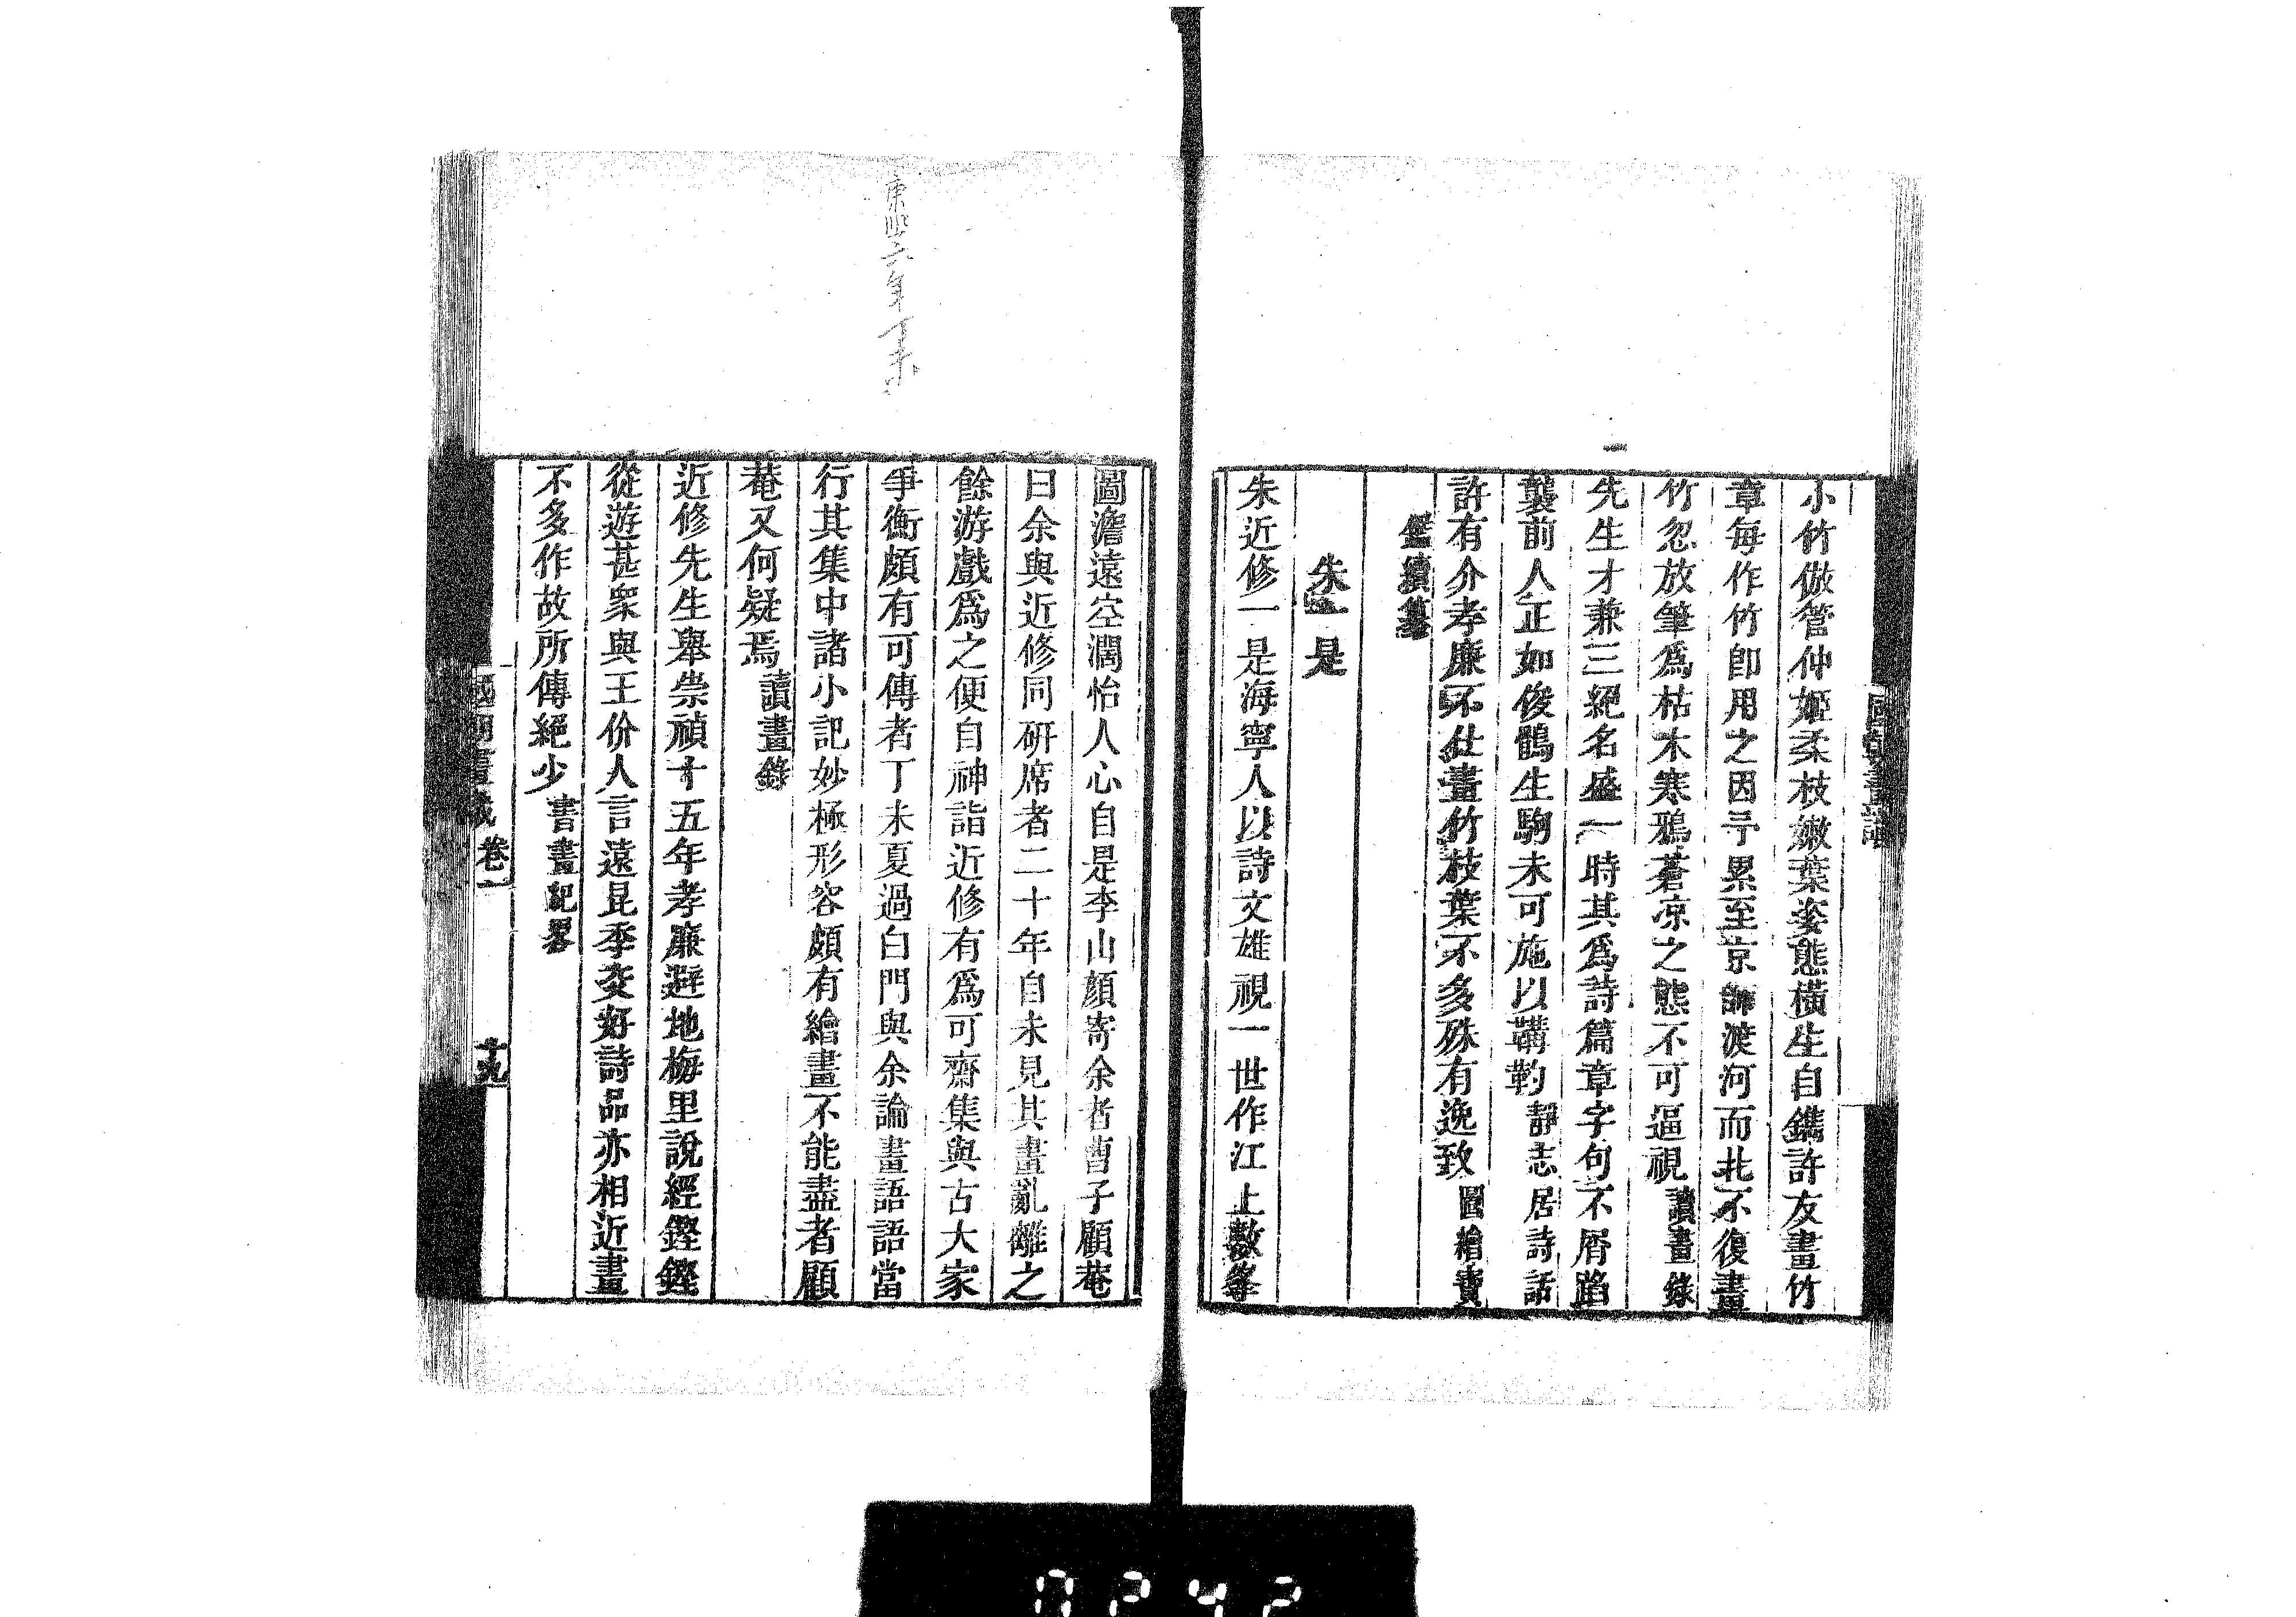 國朝畫識
小竹倣管仲姬柔枝嫩葉姿態橫生自鐫許友畫竹
章每作竹卽用之因予累至京師渡河而北不復畫
竹忽放筆爲枯木寒鴉蒼凉之態不可逼視讀畫錄
先生才兼三絕名盛一時其爲詩篇章字句不屑蹈
襲前人正如俊鶻生駒未可施以鞲靮靜志居詩話
許有介孝廉不仕畫竹枝葉不多殊有逸致圖繪寶
鑑續纂
朱一是
朱近修一是海寧人以詩文雄視一世作江上數峯
圖澹遠空濶怡人心自是李山顏寄余者曹子顧菴
曰余與近修同研席者二十年自未見其畫亂離之
餘游戲爲之便自神詣近修有爲可齋集與古大家
爭衡頗有可傳者丁未夏過白門與余論畫語語當
行其集中諸小記妙極形容頗有繪畫不能盡者顧
菴又何疑焉讀畫錄
近修先生舉崇禎十五年孝廉避地梅里說經鏗鏗
從遊甚衆與王价人言遠昆季交好詩品亦相近畫
不多作故所傳絕少書畫記畧
國朝畫識 卷一 十九
康熙六年丁未
0242